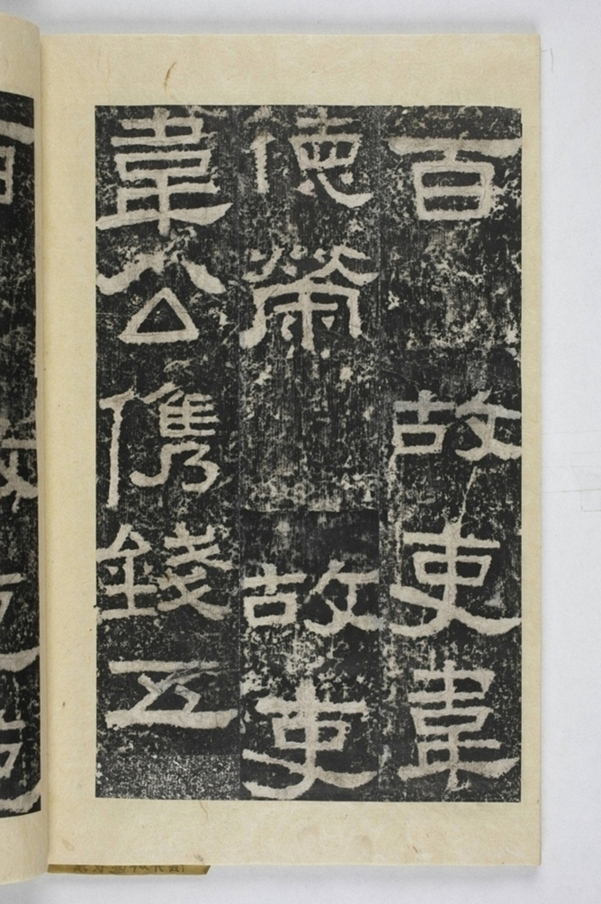 百故吏韋
德榮故吏
韋公儁錢五